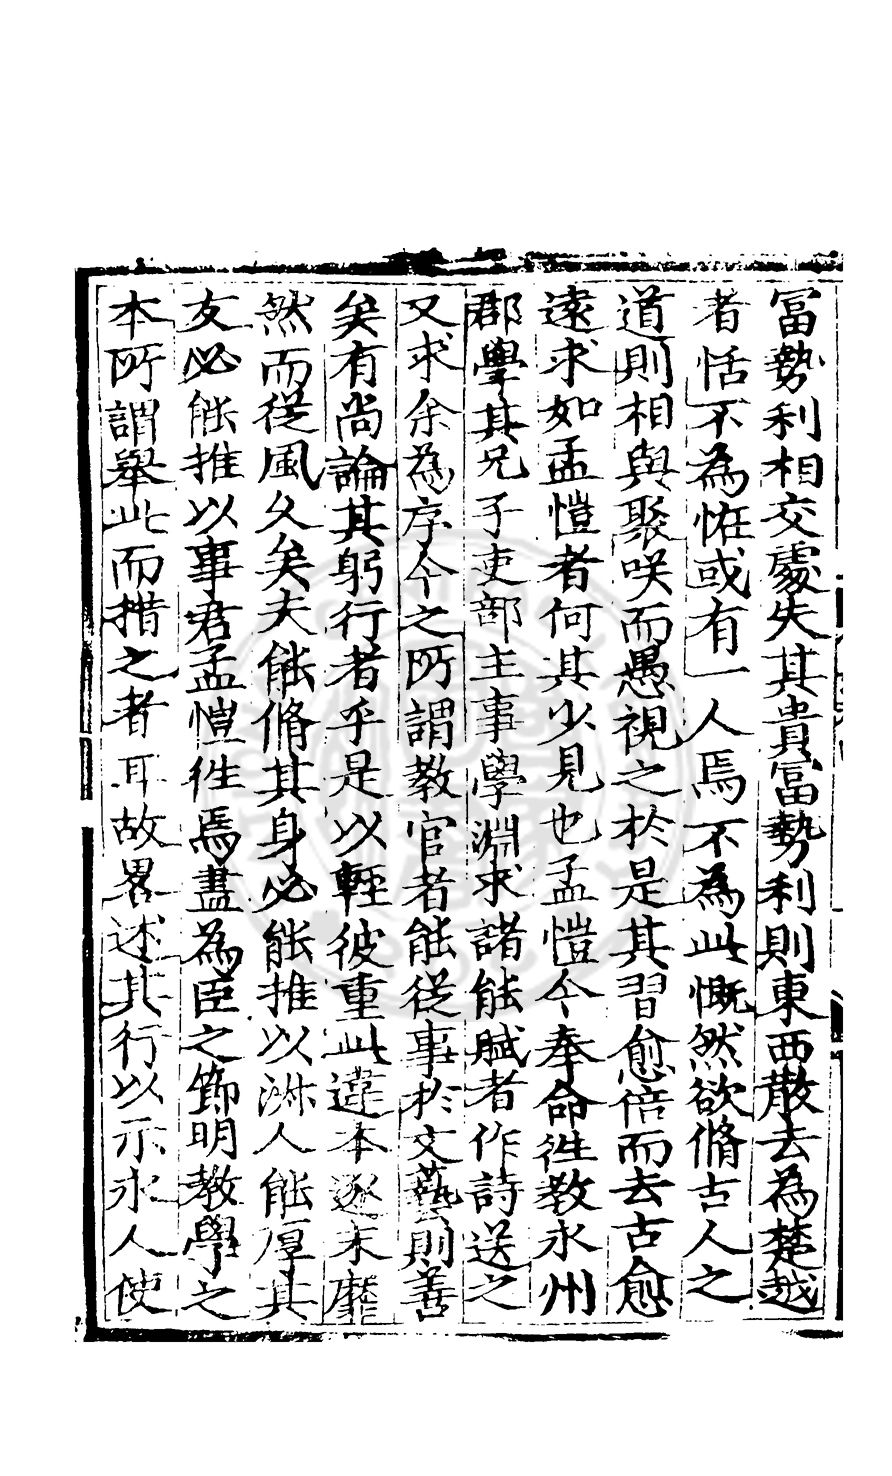 冨勢利相交處失其貴冨勢利則東西散去為楚越
者恬不為恠或有一人焉不為此慨然欲脩古人之
道則相與聚咲而愚視之於是其習愈倍而去古愈
遠求如孟愷者何其少見也孟愷今奉命徃教永州
郡學其兄子吏部主事學淵求諸能賦者作詩送之
又求余為序今之所謂教官者能從事於文藝則善
矣有尚論其躬行者乎是以輕彼重此違本逐末靡
然而從風久矣夫能脩其身必能推以淑人能厚其
友必能推以事君孟愷徃焉盡為臣之節明教學之
本所謂舉此而措之者耳故畧述其行以示永人使